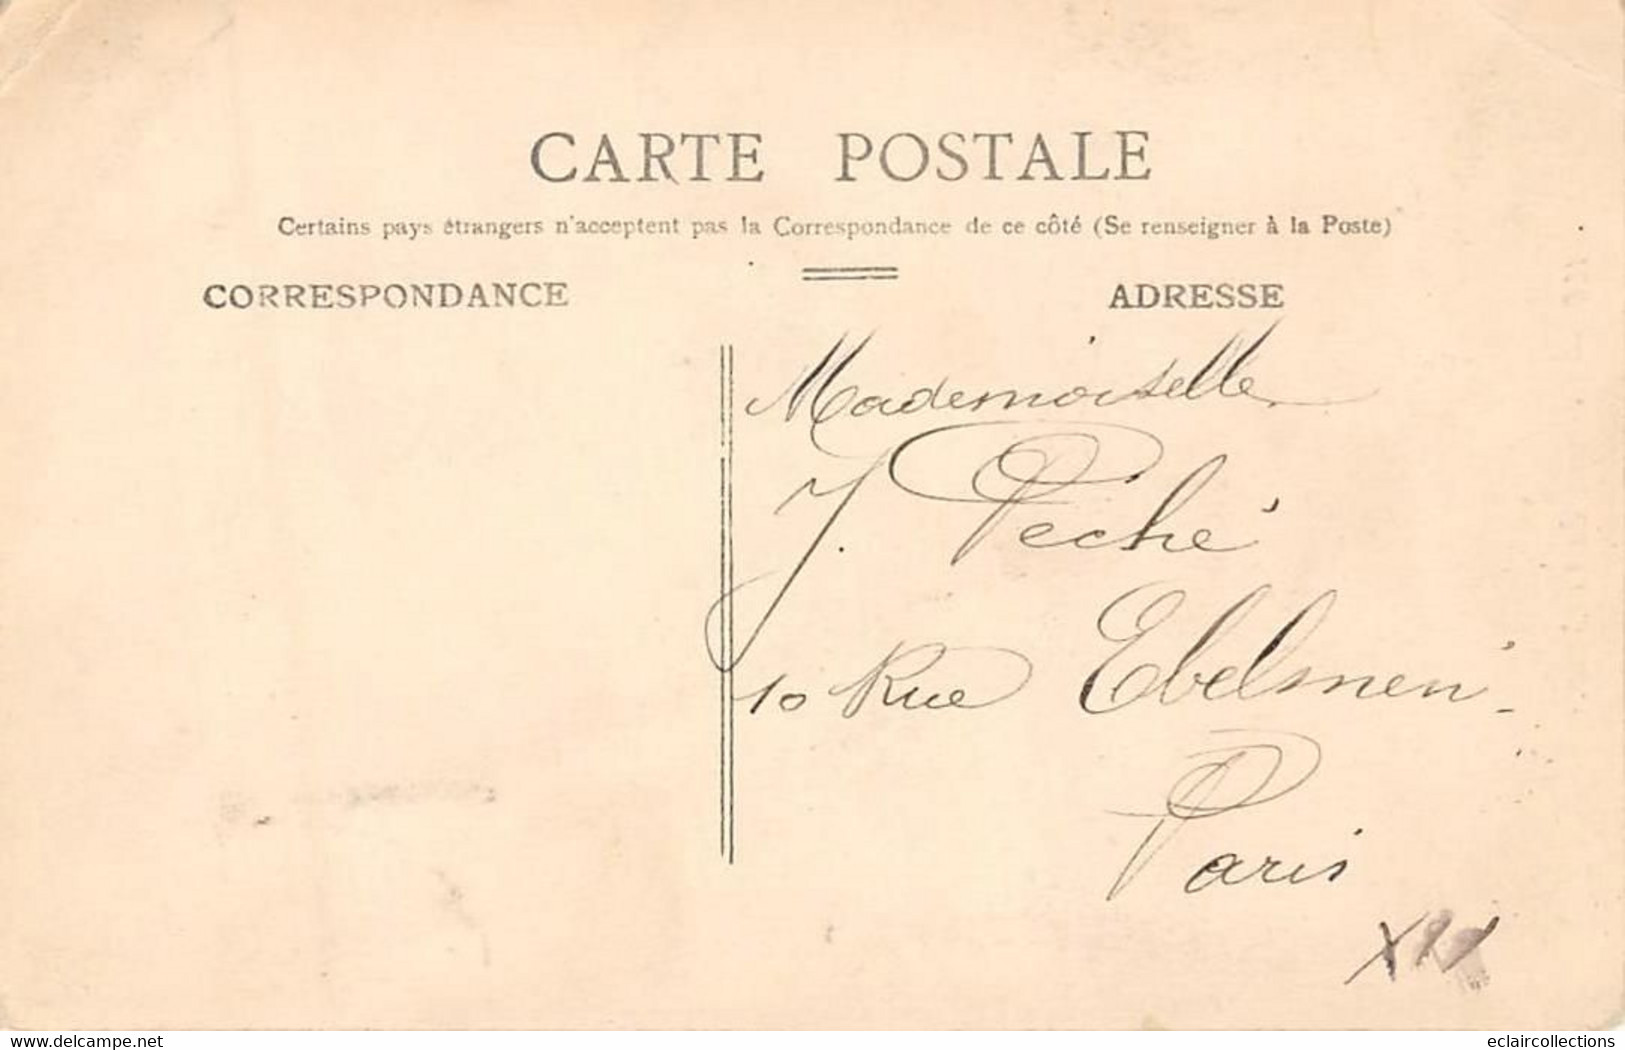 CARTE POSTALE
Certains pays étrangers n'acceptent pas la Correspondance de ce côté (Se renseigner à la Poste)
CORRESPONDANCE
ADRESSE
Mademoiselle
J. Peché
10 Rue Ebelmen
Paris
www.delcampe.net
eclaircollections